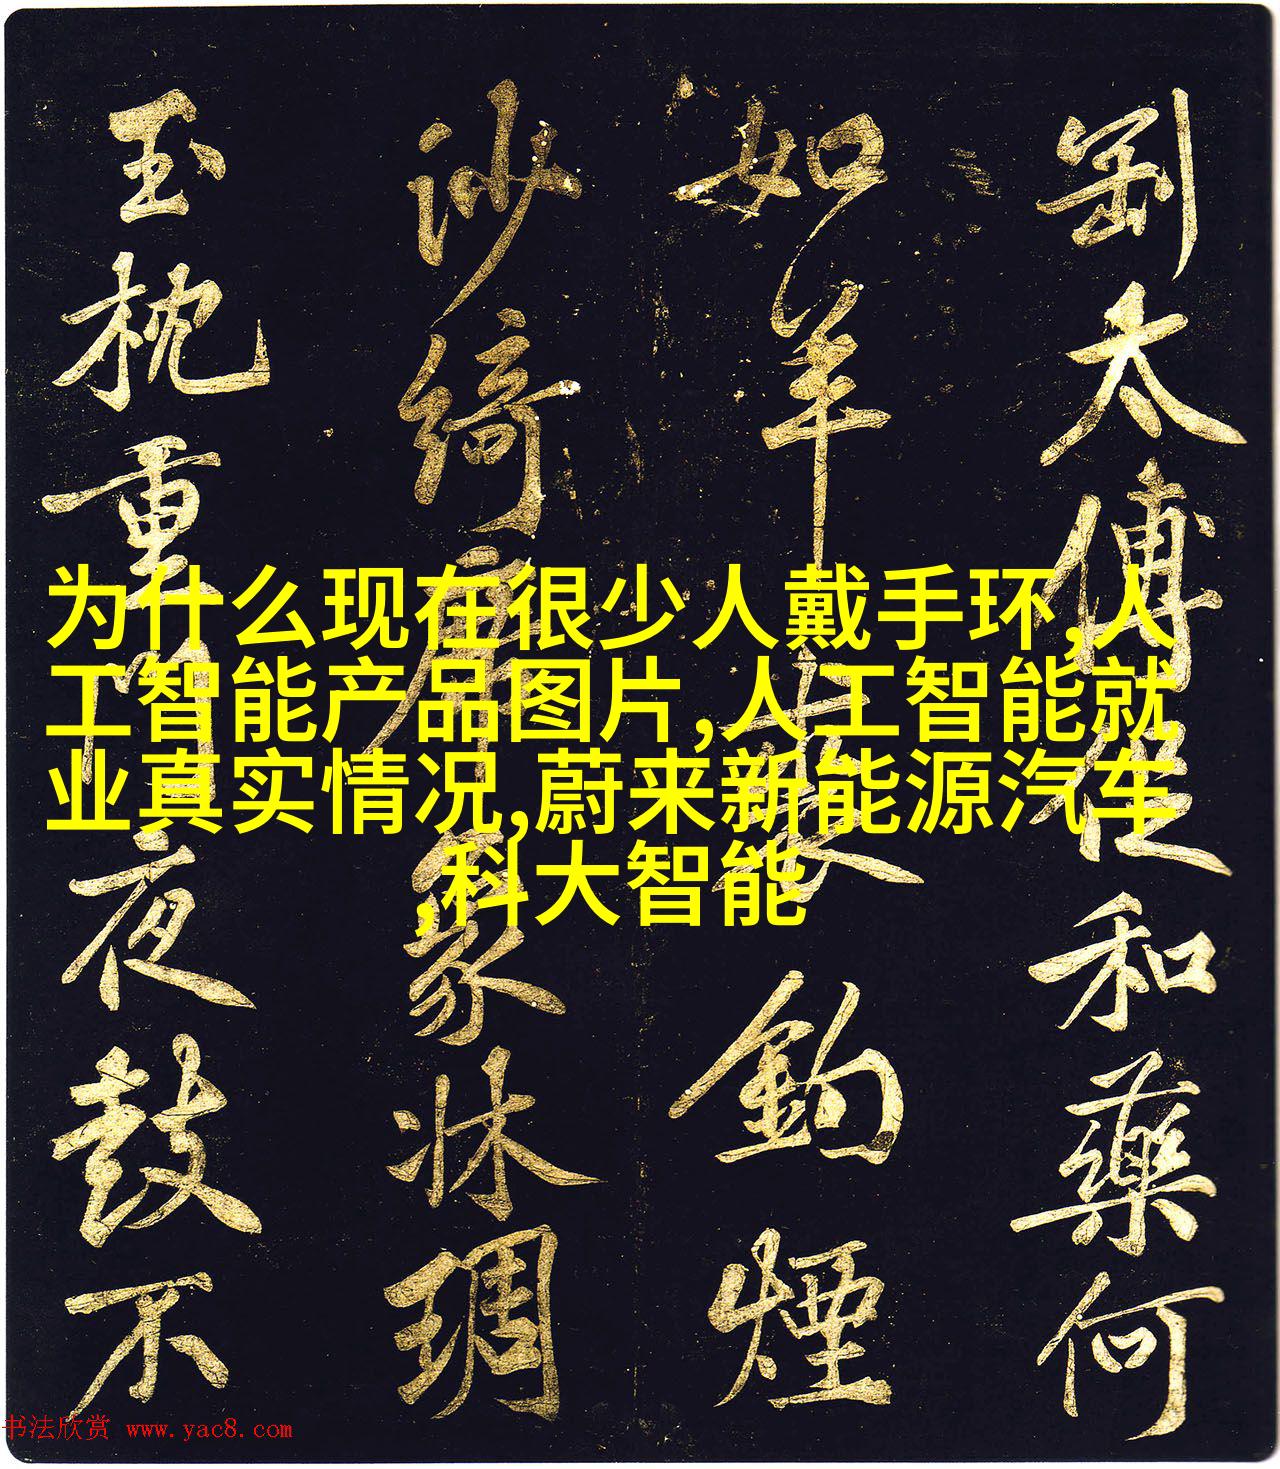 劉太傅促和藥何
如羊鉤煙
沙綺席象牀琱
玉枕重門夜鼓不
为什么现在很少人戴手环,人
工智能产品图片,人工智能就
业真实情况,蔚来新能源汽车
,科大智能
书法欣赏 www.yac8.com